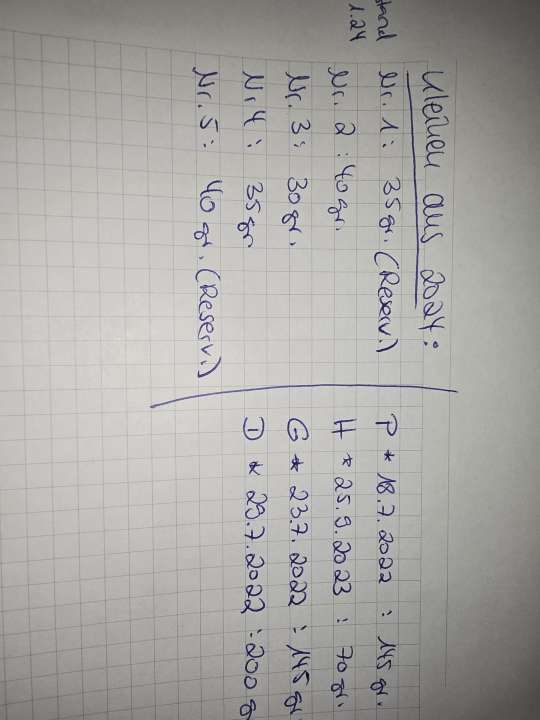 1.24
Kleinen aus 2024:
Nr. 1: 35 gr. (Reserv.)
Nr. 2: 40 gr.
Nr. 3: 30 gr.
Nr 4: 35 gr
Nr. 5: 40 gr. (Reserv.)
P * 18.7.2022 : 145 gr.
H * 25.9.2023 : 70 gr.
G * 23.7.2022 : 145 gr
D * 29.7.2022 : 200 g